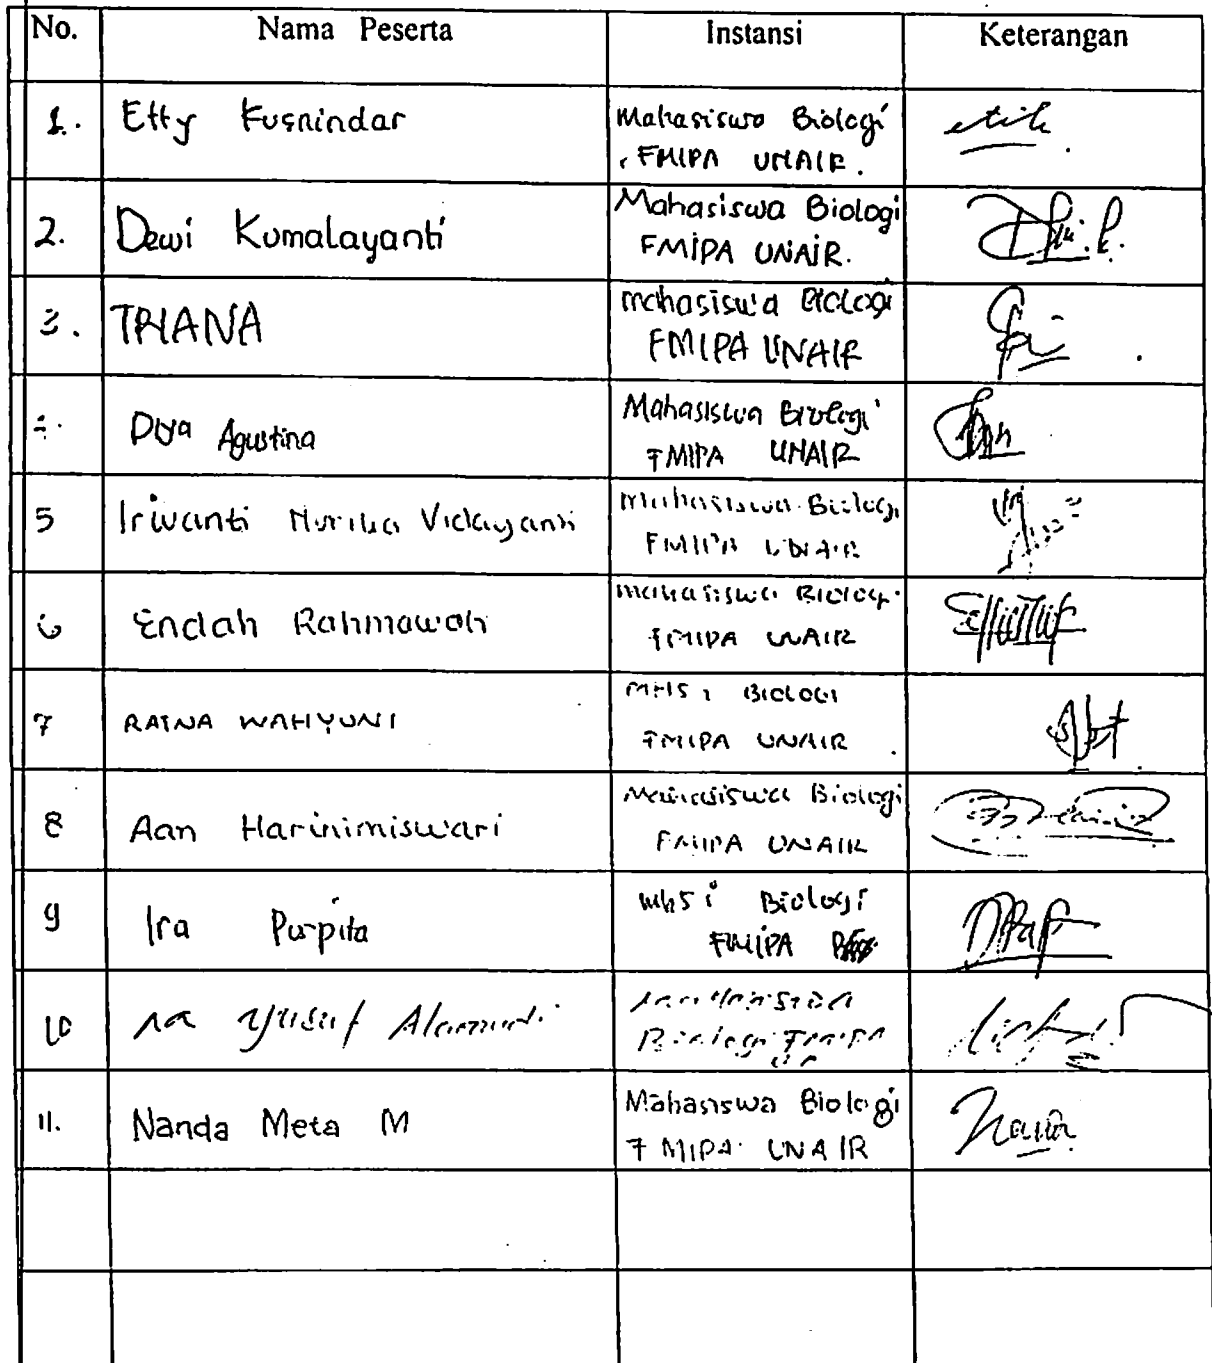 No. Nama Peserta Instansi Keterangan
1. Etty Kusnindar Mahasiswa Biologi
FMIPA UNAIR.
2. Dewi Kumalayanti Mahasiswa Biologi
FMIPA UNAIR.
3. TRIANA Mahasiswa Biologi
FMIPA UNAIR
4. Agustina Mahasiswa Biologi
FMIPA UNAIR
5 Iriwanti Vidayanti Mahasiswa Biologi
FMIPA UNAIR
6 Endah Rahmawati Mahasiswa Biologi
FMIPA UNAIR
7 RATNA WAHYUNI MHS i BIOLOGI
FMIPA UNAIR
8 Aan Harinimiswari Mahasiswa Biologi
FMIPA UNAIR
9 Ira Puspita Mhs i Biologi
FMIPA
10 Yusuf Mahasiswa
Biologi FMIPA
11. Nanda Meta M Mahasiswa Biologi
FMIPA UNAIR